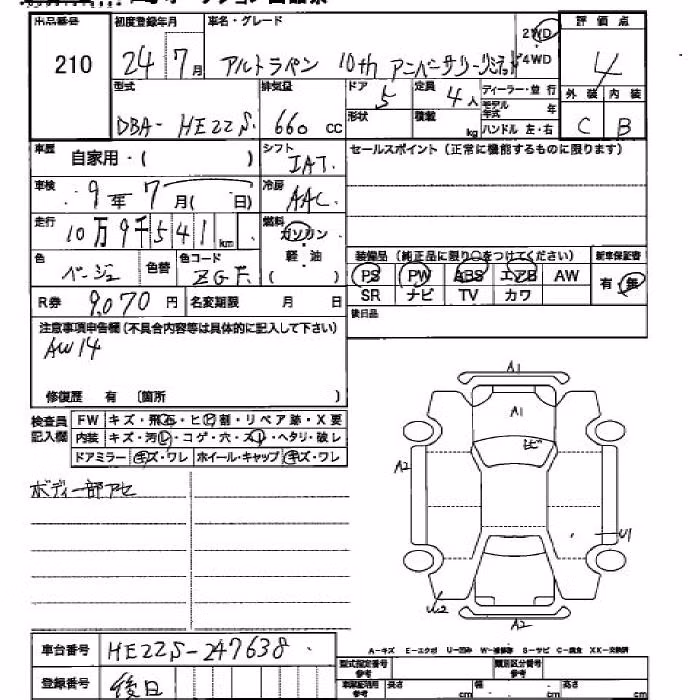 出品番号 初度登録年月 車名・グレード 2WD 評価点
210 24 7月 アルトラパン 10th アニバーサリーリミテッド 4WD 4
型式 排気量 ドア 5 定員 4人 ディーラー・並行 外装 内装
DBA- HE22S 660 cc 形状 積載 kg モデル年式 年 ハンドル 左・右 C B
車歴 自家用・( ) シフト IAT セールスポイント (正常に機能するものに限ります)
車検 9年7月( 日) 冷房 AAC
走行 10万9千541km 燃料 ガソリン
色 ベージュ 色替 色コード ZGF 軽・油 ( ) 装備品 (純正品に限り○をつけてください) 新車保証書
PS PW ABS エアB AW 有・無
R券 9,070円 名変期限 月 日 SR ナビ TV カワ
後日品
注意事項申告欄 (不具合内容等は具体的に記入して下さい)
AW14
修復歴 有 〔箇所 〕
検査員記入欄 FW キズ・飛石・ヒビ割・リペア跡・X要
内装 キズ・汚レ・コゲ・穴・スレ・ヘタリ・破レ
ドアミラー キズ・ワレ ホイール・キャップ キズ・ワレ
A1
A1
ヒビ
A2
ボディ一部アセ
U1
U2
A2
車台番号 HE22S-247638
A-キズ E-エクボ U-凹み W-補修跡 S-サビ C-腐食 XX-交換済
登録番号 後日
型式指定番号 参考 類別区分番号 参考
長さ cm 幅 cm 高さ cm